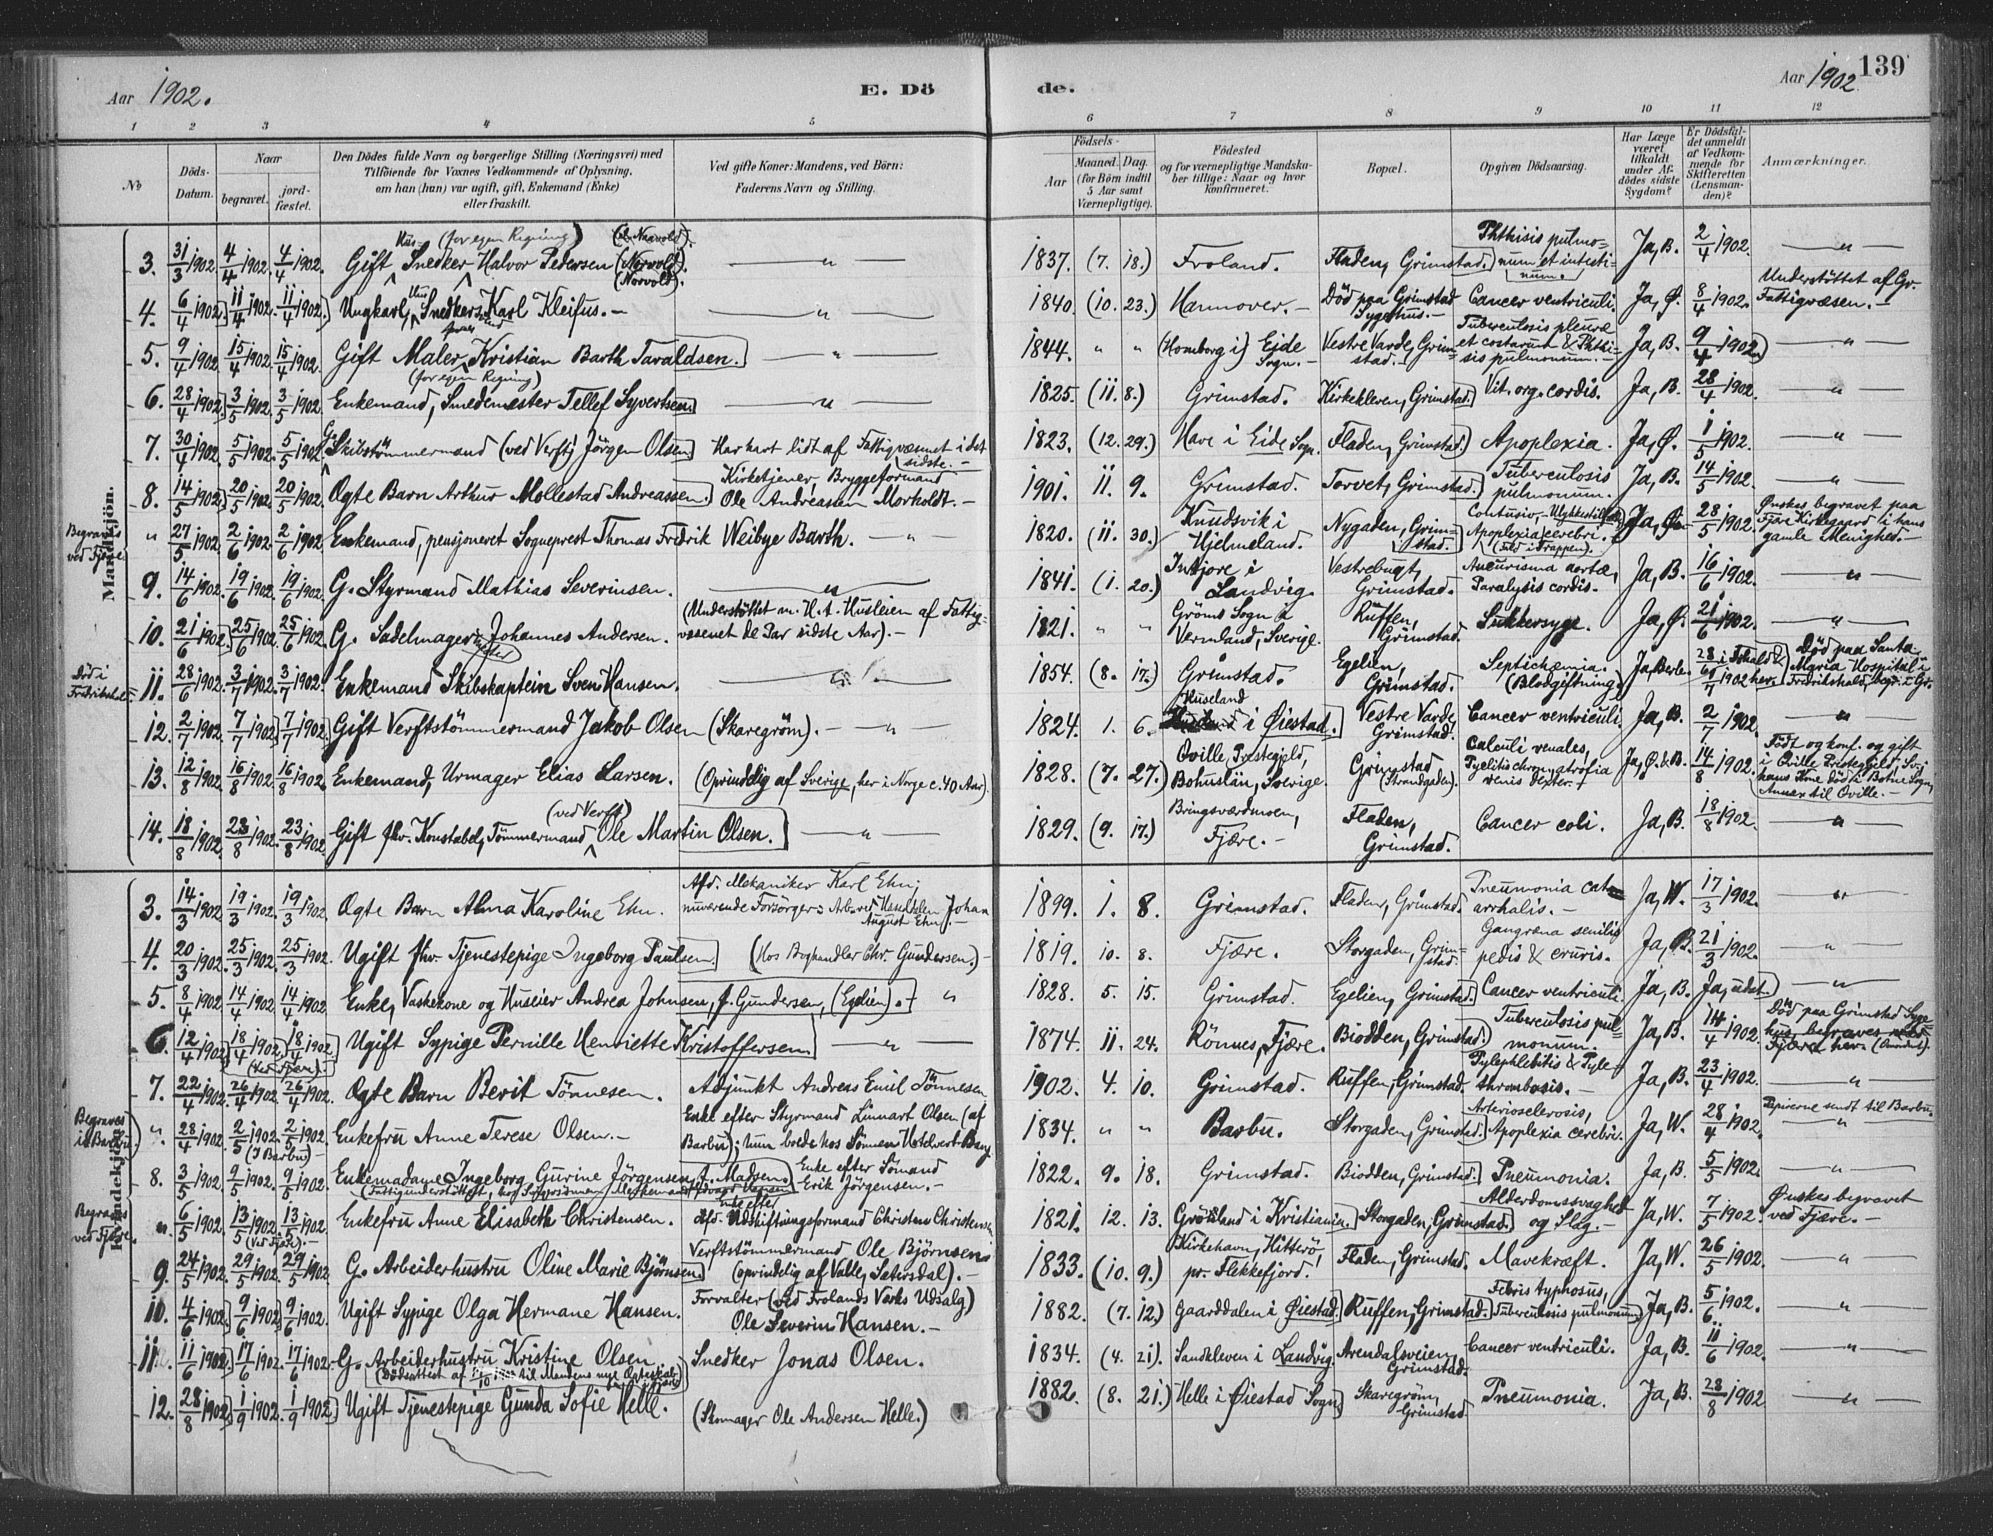 Aar 1902. E. Dö de. Aar 1902. 139
1 2 3 4 5 6 7 8 9 10 11 12
No Döds-Datum. Naar begravet. jordfæstet. Den Dödes fulde Navn og borgerlige Stilling (Næringsvei) med Tilföiende for Voxnes Vedkommende af Oplysning, om han (hun) var ugift, gift, Enkemand (Enke) eller fraskilt. Ved gifte Koner: Mandens, ved Börn: Faderens Navn og Stilling. Födsels- Aar Maaned. Dag. (for Börn indtil 5 Aar samt Værnepligtige). Födested og for værnepligtige Mandskaber tillige: Naar og hvor konfirmeret. Bopæl. Opgiven Dödsaarsag. Har Læge været tilkaldt under Afdödes sidste Sygdom? Er Dödsfaldet anmeldt af Vedkommende for Skifteretten (Lensmanden)? Anmærkninger.
Mandkjön.
3. 31/3 1902 4/4 1902. 4/4 1902. Gift Hus- Snedker (for egen Regning) Halvor Pedersen (Nørvold). (Norvold). — " — 1837. (7. 18.) Froland. Fladen, Grimstad. Phthisis pulmonum et intestinum. Ja, B. 2/4 1902. — " —
4. 6/4 1902. 11/4 1902. 11/4 1902. Ungkarl, Hus Snedkersvend Karl Kleifus. — " — 1840. (10. 23.) Hannover. — Död paa Grimstad Sygehus. — Cancer ventriculi. Ja, Ø. 8/4 1902. Understöttet af Gr. Fattigvæsen. —
5. 9/4 1902. 15/4 1902. 15/4 1902. Gift Maler (for egen Regning) Kristian Barth Taraldsen. — " — 1844. " " (Homborg i) Eide Sogn. — Vestre Varde, Grimstad. — Tuberculosis pleuræ et costarum & Phthisis pulmonum. — Ja, B. 9/4 1902. — " —
6. 28/4 1902. 3/5 1902. 3/5 1902. Enkemand, Smedemester Tellef Syvertsen. — " — 1825. (11. 8.) Grimstad. Kirkekleven, Grimstad. Vit. org. cordis. Ja, B. 28/4 1902. — " —
7. 30/4 1902. 5/5 1902. 5/5 1902. G. Skibstömmermand (ved Verft) Jörgen Olsen. Har havt lidt af Fattigvæsnet i det sidste. — 1823. (12. 29.) Have i Eide Sogn. Fladen, Grimstad. Apoplexia. Ja, Ø. 1/5 1902. — " —
8. 14/5 1902. 20/5 1902. 20/5 1902. Ægte Barn Arthur Mollestad Andreassen. Kirketjener, Bryggeformand Ole Andreassen Morholdt. — 1901. 11. 9. Grimstad. Torvet, Grimstad. Tuberculosis pulmonum. Ja, B. 14/5 1902. — " —
Begraves ved Fjære. " 27/5 1902. 2/6 1902. 2/6 1902. Enkemand, pensjoneret Sogneprest Thomas Fredrik Weibye Barth. — " — 1820. (11. 30.) Knudsvik i Hjelmeland. Nygaden, Grimstad. Contusio, — Ulykkestilfælde Apoplexia cerebri. (Fald i Trappen). Ja, Ø. 28/5 1902. Ønskes begravet paa Fjære Kirkegaard i hans gamle Menighed. —
9. 14/6 1902. 19/6 1902. 19/6 1902. G. Styrmand Mathias Severinsen. — " — 1841. (1. 20.) Indjore i Landvig. Vestrebugt, Grimstad. Aneurisma aortæ, Paralysis cordis. Ja, B. 16/6 1902. — " —
10. 21/6 1902. 25/6 1902. 25/6 1902. G. Sadelmager Johannes Andersen. (Understöttet m. H. t. Husleien af Fattigvæsenet de Par sidste Aar). — 1821. " " Gröms Sogn i Vermland, Sverige. Ruffen, Grimstad. Sukkersyge. Ja, Ø. 21/6 1902. — " —
Död i Fredrikshald. 11. 28/6 1902. 3/7 1902. 3/7 1902. Enkemand Skibskaptein Sven Hansen. — " — 1854. (8. 17.) Grimstad. Egelien, Grimstad. Septichæmia. (Blodgiftning). Ja, Berle. 28/6 i Fhald & 1/7 1902 her. Död paa Santa Maria Hospital i Fredrikshald, begr. i Gr.
12. 2/7 1902. 7/7 1902. 7/7 1902. Gift Verftstömmermand Jakob Olsen (Skaregröm). — " — 1824. 1. 6. Huseland i Øiestad. Vestre Varde, Grimstad. Cancer ventriculi. Ja, B. 2/7 1902. — " —
13. 12/8 1902. 16/8 1902. 16/8 1902. Enkemand, Urmager Elias Larsen. (Oprindelig af Sverige, her i Norge c. 40 Aar). 1828. (7. 27.) Qville, Prestegjeld, Bohuslän, Sverige. Grimstad (Strandgaden). Calculi renales, Pyelitis chron., atrofia renis dexter. Ja, Ø. & B. 14/8 1902. Födt og konf. og gift i Qville Prestegjeld, Sv.; hans Kone död i Botne Sogn, Annex til Qville. —
14. 18/8 1902. 23/8 1902. 23/8 1902. Gift fhv. Konstabel, Tömmermand (ved Verft) Ole Martin Olsen. — " — 1829. (9. 17.) Bringsværdmoen, Fjære. — Fladen, Grimstad. Cancer coli. Ja, B. 18/8 1902. — " —
Kvindekjön.
3. 14/3 1902. 19/3 1902. 19/3 1902. Ægte Barn Alma Karoline Ehn. Afd. Mekaniker Karl Ehn; nuværende Forsörger: Arb. ved Handelen Johan August Ehn. 1899. 1. 8. Grimstad. Fladen, Grimstad. Pneumonia catarrhalis. — Ja, W. 17/3 1902. — " —
4. 20/3 1902. 25/3 1902. 25/3 1902. Ugift fhv. Tjenestepige Ingeborg Paulsen. (Hos Boghandler Chr. Gundersen.) — 1819. 10. 8. Fjære. Storgaden, Grimstad. Gangræna senilis pedis & cruris. Ja, B. 21/3 1902. — " —
5. 8/4 1902. 14/4 1902. 14/4 1902. Enke, Vaskekone og Huseier Andrea Johnsen, f. Gundersen, (Egelien). — " 1828. 5. 15. Grimstad. Egelien, Grimstad. Cancer ventriculi. Ja, B. Ja, udst. — " —
6. 12/4 1902. 18/4 1902. 18/4 1902. (Ved Fjære). Ugift Sypige Pernille Henriette Kristoffersen. — " — 1874. 11. 24. Rönnes, Fjære. Biodden, Grimstad. Tuberculosis pulmonum. Ja, B. 14/4 1902. Död paa Grimstad Sygehus, begraves ved Fjære her.
7. 22/4 1902. 26/4 1902. 26/4 1902. Ægte Barn Berit Tönnesen. Adjunkt Andreas Emil Tönnesen 1902. 4. 10. Grimstad. Ruffen, Grimstad. Pylephlebitis & Pylethrombosis. — Ja, B. 23/4 1902. — " —
Begraves i Barbu. " 28/4 1902. 2/5 1902. 2/5 1902. (I Barbu) — Enkefru Anne Terese Olsen. — Enke efter Styrmand Linnart Olsen (af Barbu); hun boede hos Sönnen Hotelvert Bang 1834. " " Barbu. Storgaden, Grimstad. Arteriosclerosis, Apoplexia cerebri. Ja, W. 28/4 1902. Papirerne sendt til Barbu. — " —
8. 3/5 1902. 9/5 1902. 9/5 1902. Enkemadame Ingeborg Gurine Jörgensen, f. Madsen. Enke efter Sömand Erik Jörgensen. — 1822. 9. 18. Grimstad. Biodden, Grimstad. Pneumonia. Ja, B. 5/5 1902. — " —
Begraves ved Fjære. " 6/5 1902. 13/5 1902. 13/5 1902. (Ved Fjære). — Enkefru Anne Elisabeth Christensen. Enke efter Afd. Udskiftningsformand Christen Christensen 1821. 12. 13. Grönland i Kristiania. Storgaden, Grimstad. Alderdomssvaghed og Slag. — Ja, W. 7/5 1902. Ønskes begravet ved Fjære. —
9. 24/5 1902. 29/5 1902. 29/5 1902. G. Arbeiderhustru Oline Marie Björnsen. Verftstömmermand Ole Björnsen (oprindelig af Valle, Sætersdal). — 1833. (10. 9.) Kirkehavn, Hitterö pr. Flekkefjord. Fladen, Grimstad. Mavekræft. Ja, W. 26/5 1902. — " —
10. 4/6 1902. 9/6 1902. 9/6 1902. Ugift Sypige Olga Hermane Hansen. Forvalter (ved Frolands Verks Udsalg) Ole Severin Hansen. — 1882. (7. 12.) Gaarddalen i Øiestad. Ruffen, Grimstad. Febris typhosus, Tuberculosis pulmonum. Ja, B. 5/6 1902. — " —
11. 11/6 1902. 17/6 1902. 17/6 1902. G. Arbeiderhustru Kristine Olsen (Dödsattest af til Mandens nye Ægteskab) Snedker Jonas Olsen. 1834. (4. 21.) Sandkleven i Landvig. Arendalsveien, Grimstad. Cancer ventriculi. Ja, B. 11/6 1902. — " —
12. 28/8 1902. 1/9 1902. 1/9 1902. Ugift Tjenestepige Gunda Sofie Helle. (Skomager Ole Andersen Helle.) 1882. (8. 21.) Helle i Øiestad Sogn. Skaregröm, Grimstad. Pneumonia. Ja, B. 28/8 1902. — " —